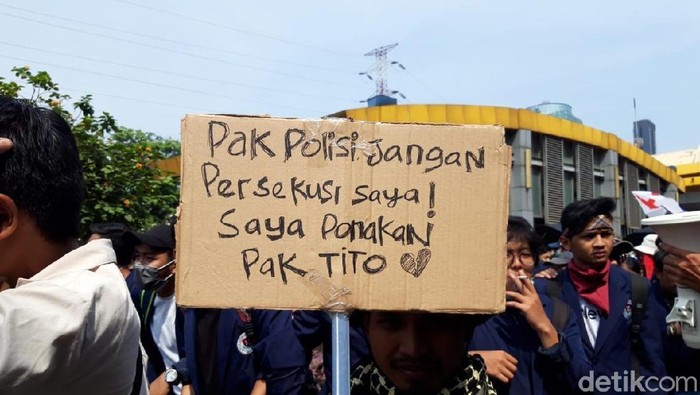 Pak Polisi Jangan
Persekusi saya!
Saya Ponakan
Pak TITO
detikcom